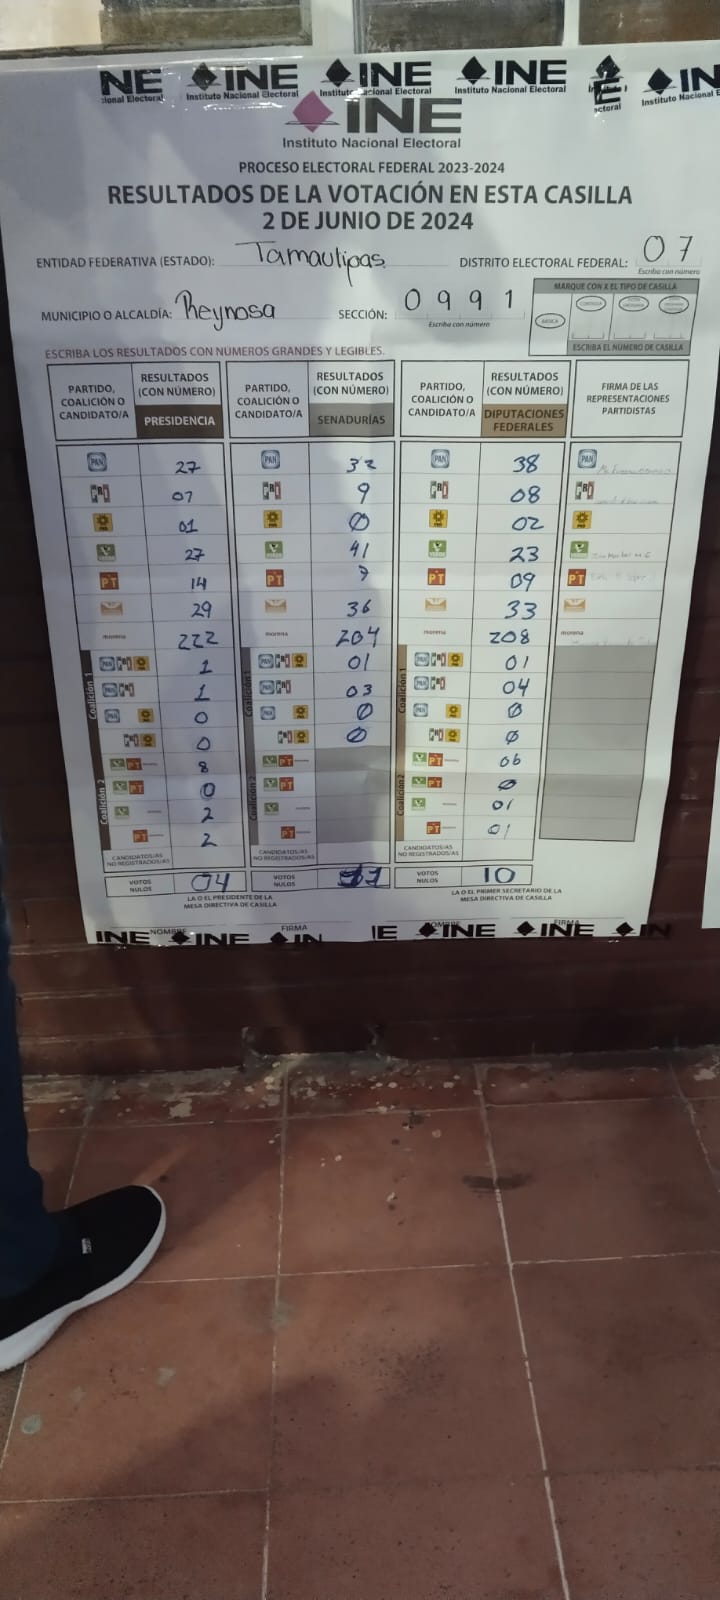 INE INE INE INE INE IN
cional Electoral Instituto Nacional Electoral Instituto Nacional Electoral Instituto Nacional Electoral ectoral Instituto Nacional E
INE
Instituto Nacional Electoral
PROCESO ELECTORAL FEDERAL 2023-2024
RESULTADOS DE LA VOTACIÓN EN ESTA CASILLA
2 DE JUNIO DE 2024
ENTIDAD FEDERATIVA (ESTADO): Tamaulipas DISTRITO ELECTORAL FEDERAL: 07
Escriba con número
MUNICIPIO O ALCALDÍA: Reynosa SECCIÓN: 0991
Escriba con número
MARQUE CON X EL TIPO DE CASILLA
BÁSICA CONTIGUA
ESCRIBA EL NÚMERO DE CASILLA
ESCRIBA LOS RESULTADOS CON NÚMEROS GRANDES Y LEGIBLES.
PARTIDO, COALICIÓN O CANDIDATO/A RESULTADOS (CON NÚMERO) PRESIDENCIA PARTIDO, COALICIÓN O CANDIDATO/A RESULTADOS (CON NÚMERO) SENADURÍAS PARTIDO, COALICIÓN O CANDIDATO/A RESULTADOS (CON NÚMERO) DIPUTACIONES FEDERALES FIRMA DE LAS REPRESENTACIONES PARTIDISTAS
PAN 27 PAN 32 PAN 38 PAN
PRI 07 PRI 9 PRI 08 PRI
PRD 01 PRD 0 PRD 02 PRD
VERDE 27 VERDE 41 VERDE 23 VERDE
PT 14 PT 7 PT 09 PT
29 36 33
morena 222 morena 204 morena 208 morena
Coalición 1 PAN PRI PRD 1 Coalición 1 PAN PRI PRD 01 Coalición 1 PAN PRI PRD 01
PAN PRI 1 PAN PRI 03 PAN PRI 04
PAN PRD 0 PAN PRD 0 PAN PRD 0
PRI PRD 0 PRI PRD 0 PRI PRD 0
Coalición 2 VERDE PT morena 8 Coalición 2 VERDE PT morena Coalición 2 VERDE PT morena 06
VERDE PT 0 VERDE PT VERDE PT 0
VERDE morena 2 VERDE morena VERDE morena 01
PT morena 2 PT morena PT morena 01
CANDIDATOS/AS NO REGISTRADOS/AS CANDIDATOS/AS NO REGISTRADOS/AS CANDIDATOS/AS NO REGISTRADOS/AS
VOTOS NULOS 04 VOTOS NULOS VOTOS NULOS 10
LA O EL PRESIDENTE DE LA MESA DIRECTIVA DE CASILLA LA O EL PRIMER SECRETARIO DE LA MESA DIRECTIVA DE CASILLA
NOMBRE FIRMA NOMBRE FIRMA
INE INE IN IE INE INE IN